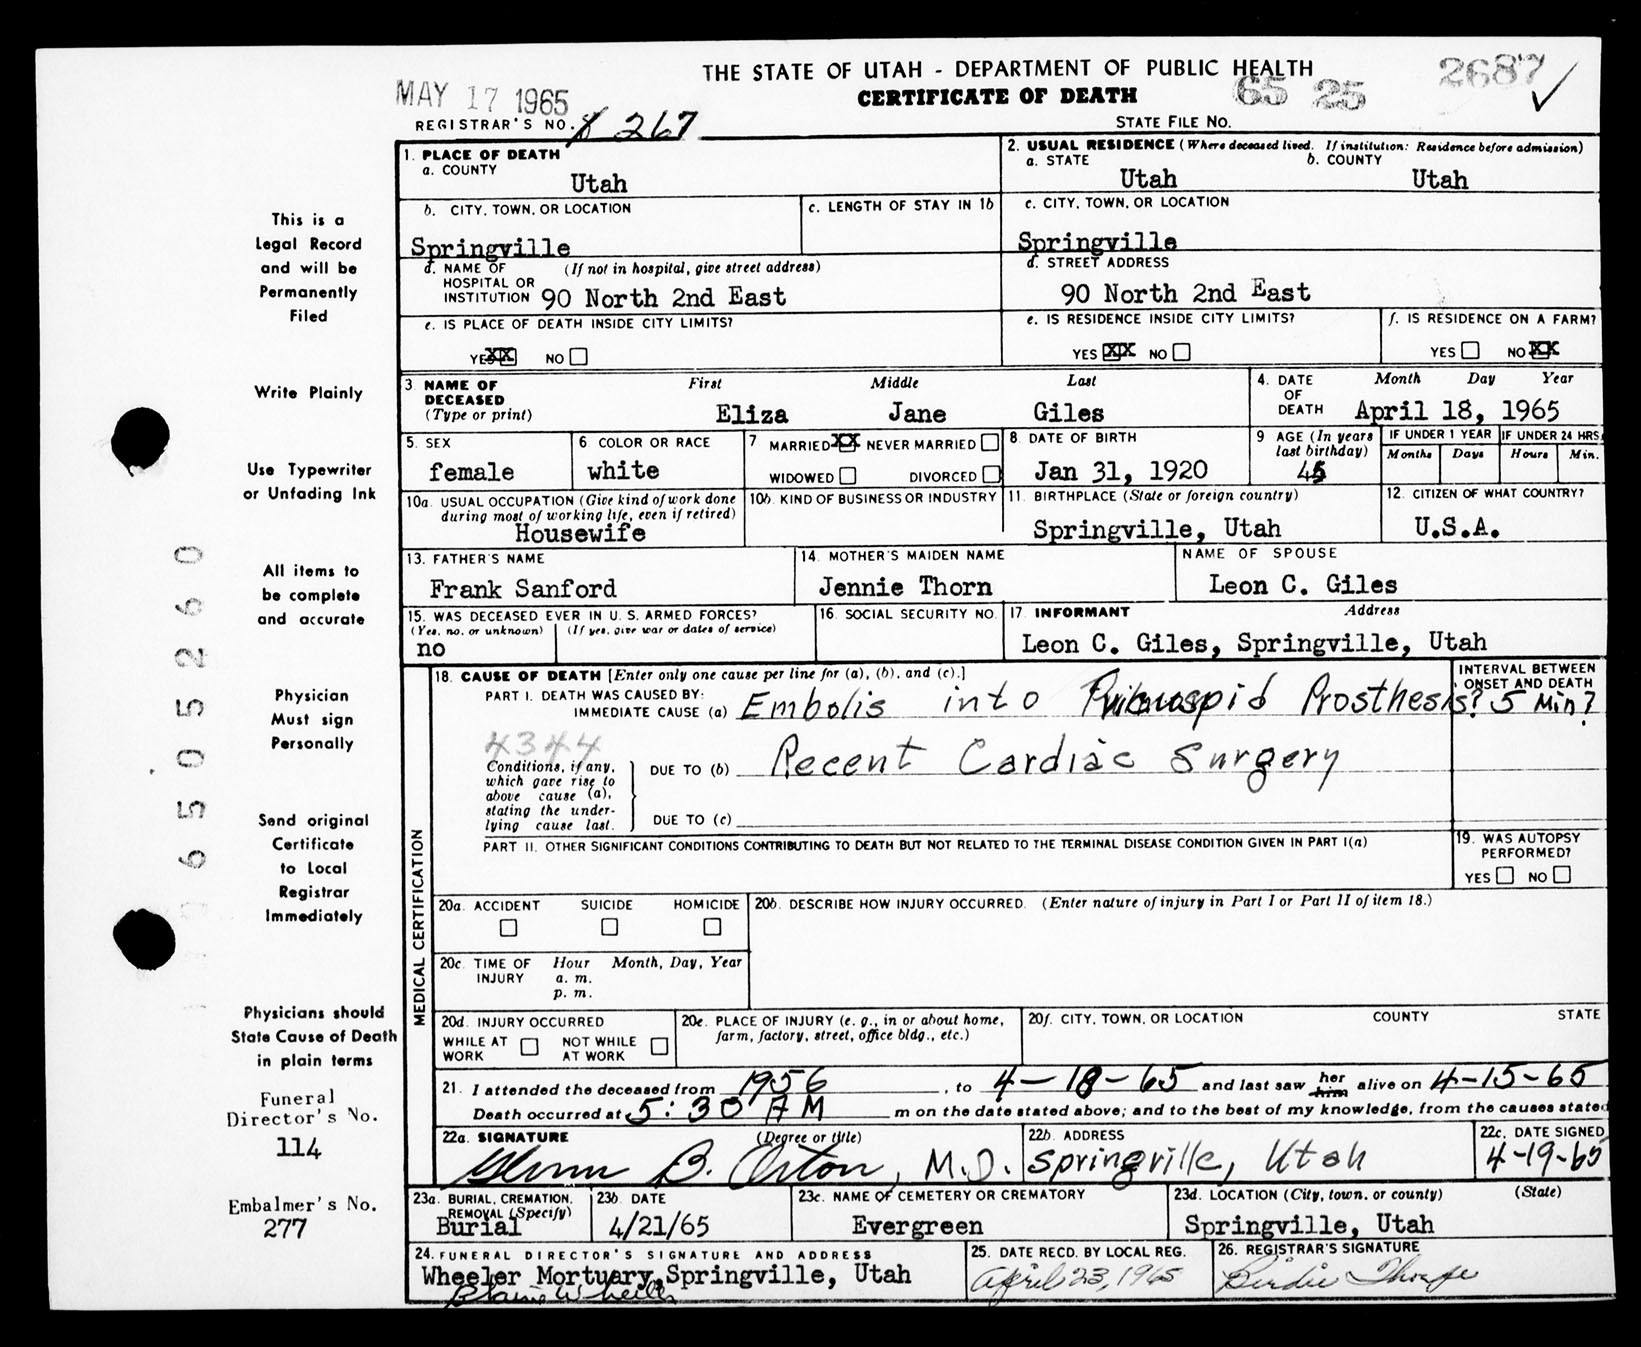 THE STATE OF UTAH - DEPARTMENT OF PUBLIC HEALTH
CERTIFICATE OF DEATH
MAY 17 1965
65 25
2687 ✓
REGISTRAR'S NO. 267
STATE FILE NO.
1. PLACE OF DEATH
a. COUNTY
Utah
2. USUAL RESIDENCE (Where deceased lived. If institution: Residence before admission)
a. STATE
Utah
b. COUNTY
Utah
b. CITY, TOWN, OR LOCATION
Springville
c. LENGTH OF STAY IN 1b
c. CITY, TOWN, OR LOCATION
Springville
d. NAME OF HOSPITAL OR INSTITUTION (If not in hospital, give street address)
90 North 2nd East
d. STREET ADDRESS
90 North 2nd East
e. IS PLACE OF DEATH INSIDE CITY LIMITS?
YES XX NO
e. IS RESIDENCE INSIDE CITY LIMITS?
YES XX NO
f. IS RESIDENCE ON A FARM?
YES NO XX
3. NAME OF DECEASED (Type or print)
First Middle Last
Eliza Jane Giles
4. DATE OF DEATH
Month Day Year
April 18, 1965
5. SEX
female
6 COLOR OR RACE
white
7 MARRIED XX NEVER MARRIED
WIDOWED DIVORCED
8 DATE OF BIRTH
Jan 31, 1920
9 AGE (In years last birthday)
45
IF UNDER 1 YEAR
Months Days
IF UNDER 24 HRS.
Hours Min.
10a. USUAL OCCUPATION (Give kind of work done during most of working life, even if retired)
Housewife
10b. KIND OF BUSINESS OR INDUSTRY
11. BIRTHPLACE (State or foreign country)
Springville, Utah
12. CITIZEN OF WHAT COUNTRY?
U.S.A.
13. FATHER'S NAME
Frank Sanford
14. MOTHER'S MAIDEN NAME
Jennie Thorn
NAME OF SPOUSE
Leon C. Giles
15. WAS DECEASED EVER IN U. S. ARMED FORCES?
(Yes, no, or unknown) (If yes, give war or dates of service)
no
16. SOCIAL SECURITY NO.
17. INFORMANT Address
Leon C. Giles, Springville, Utah
MEDICAL CERTIFICATION
18. CAUSE OF DEATH [Enter only one cause per line for (a), (b), and (c).]
PART I. DEATH WAS CAUSED BY:
IMMEDIATE CAUSE (a) Embolis into Prosthesis?
INTERVAL BETWEEN ONSET AND DEATH
5 Min?
4344
Conditions, if any, which gave rise to above cause (a), stating the underlying cause last.
DUE TO (b) Recent Cardiac Surgery
DUE TO (c)
PART II. OTHER SIGNIFICANT CONDITIONS CONTRIBUTING TO DEATH BUT NOT RELATED TO THE TERMINAL DISEASE CONDITION GIVEN IN PART I(a)
19. WAS AUTOPSY PERFORMED?
YES NO
20a. ACCIDENT SUICIDE HOMICIDE
20b. DESCRIBE HOW INJURY OCCURRED. (Enter nature of injury in Part I or Part II of item 18.)
20c. TIME OF INJURY
Hour Month, Day, Year
a. m.
p. m.
20d. INJURY OCCURRED
WHILE AT WORK NOT WHILE AT WORK
20e. PLACE OF INJURY (e. g., in or about home, farm, factory, street, office bldg., etc.)
20f. CITY, TOWN, OR LOCATION COUNTY STATE
21. I attended the deceased from 1956, to 4-18-65 and last saw her him alive on 4-15-65
Death occurred at 5:30 AM m on the date stated above; and to the best of my knowledge, from the causes stated
22a. SIGNATURE (Degree or title)
Glenn B. Orton, M.D.
22b. ADDRESS
Springville, Utah
22c. DATE SIGNED
4-19-65
23a. BURIAL, CREMATION, REMOVAL (Specify)
Burial
23b DATE
4/21/65
23c. NAME OF CEMETERY OR CREMATORY
Evergreen
23d. LOCATION (City, town, or county) (State)
Springville, Utah
24. FUNERAL DIRECTOR'S SIGNATURE AND ADDRESS
Wheeler Mortuary, Springville, Utah
Blaine Wheeler
25. DATE RECD. BY LOCAL REG.
April 23, 1965
26. REGISTRAR'S SIGNATURE
Birdie Thorpe
This is a
Legal Record
and will be
Permanently
Filed
Write Plainly
Use Typewriter
or Unfading Ink
All items to
be complete
and accurate
Physician
Must sign
Personally
Send original
Certificate
to Local
Registrar
Immediately
Physicians should
State Cause of Death
in plain terms
Funeral
Director's No.
114
Embalmer's No.
277
6505260